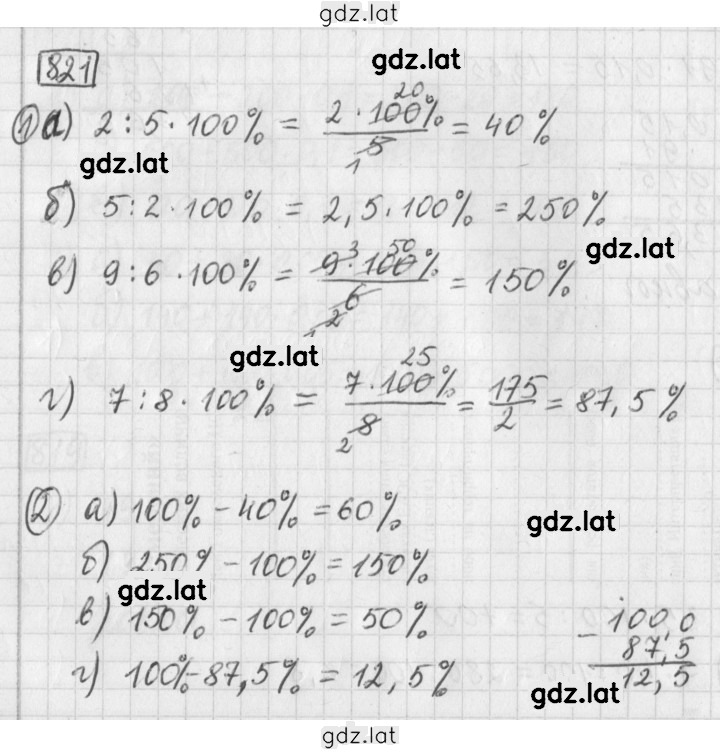 gdz.lat
821
gdz.lat
1 а) 2 : 5 · 100% = 2 · 100%/5 = 40% 20 1
gdz.lat
б) 5 : 2 · 100% = 2,5 · 100% = 250%
gdz.lat
в) 9 : 6 · 100% = 9 · 100%/6 = 150% 3 50 2 1
gdz.lat
г) 7 : 8 · 100% = 7 · 100%/8 = 175/2 = 87,5% 25 2
2 а) 100% - 40% = 60%
gdz.lat
б) 250% - 100% = 150%
gdz.lat
в) 150% - 100% = 50%
г) 100% - 87,5% = 12,5%
- 100,0
87,5
12,5
gdz.lat
gdz.lat